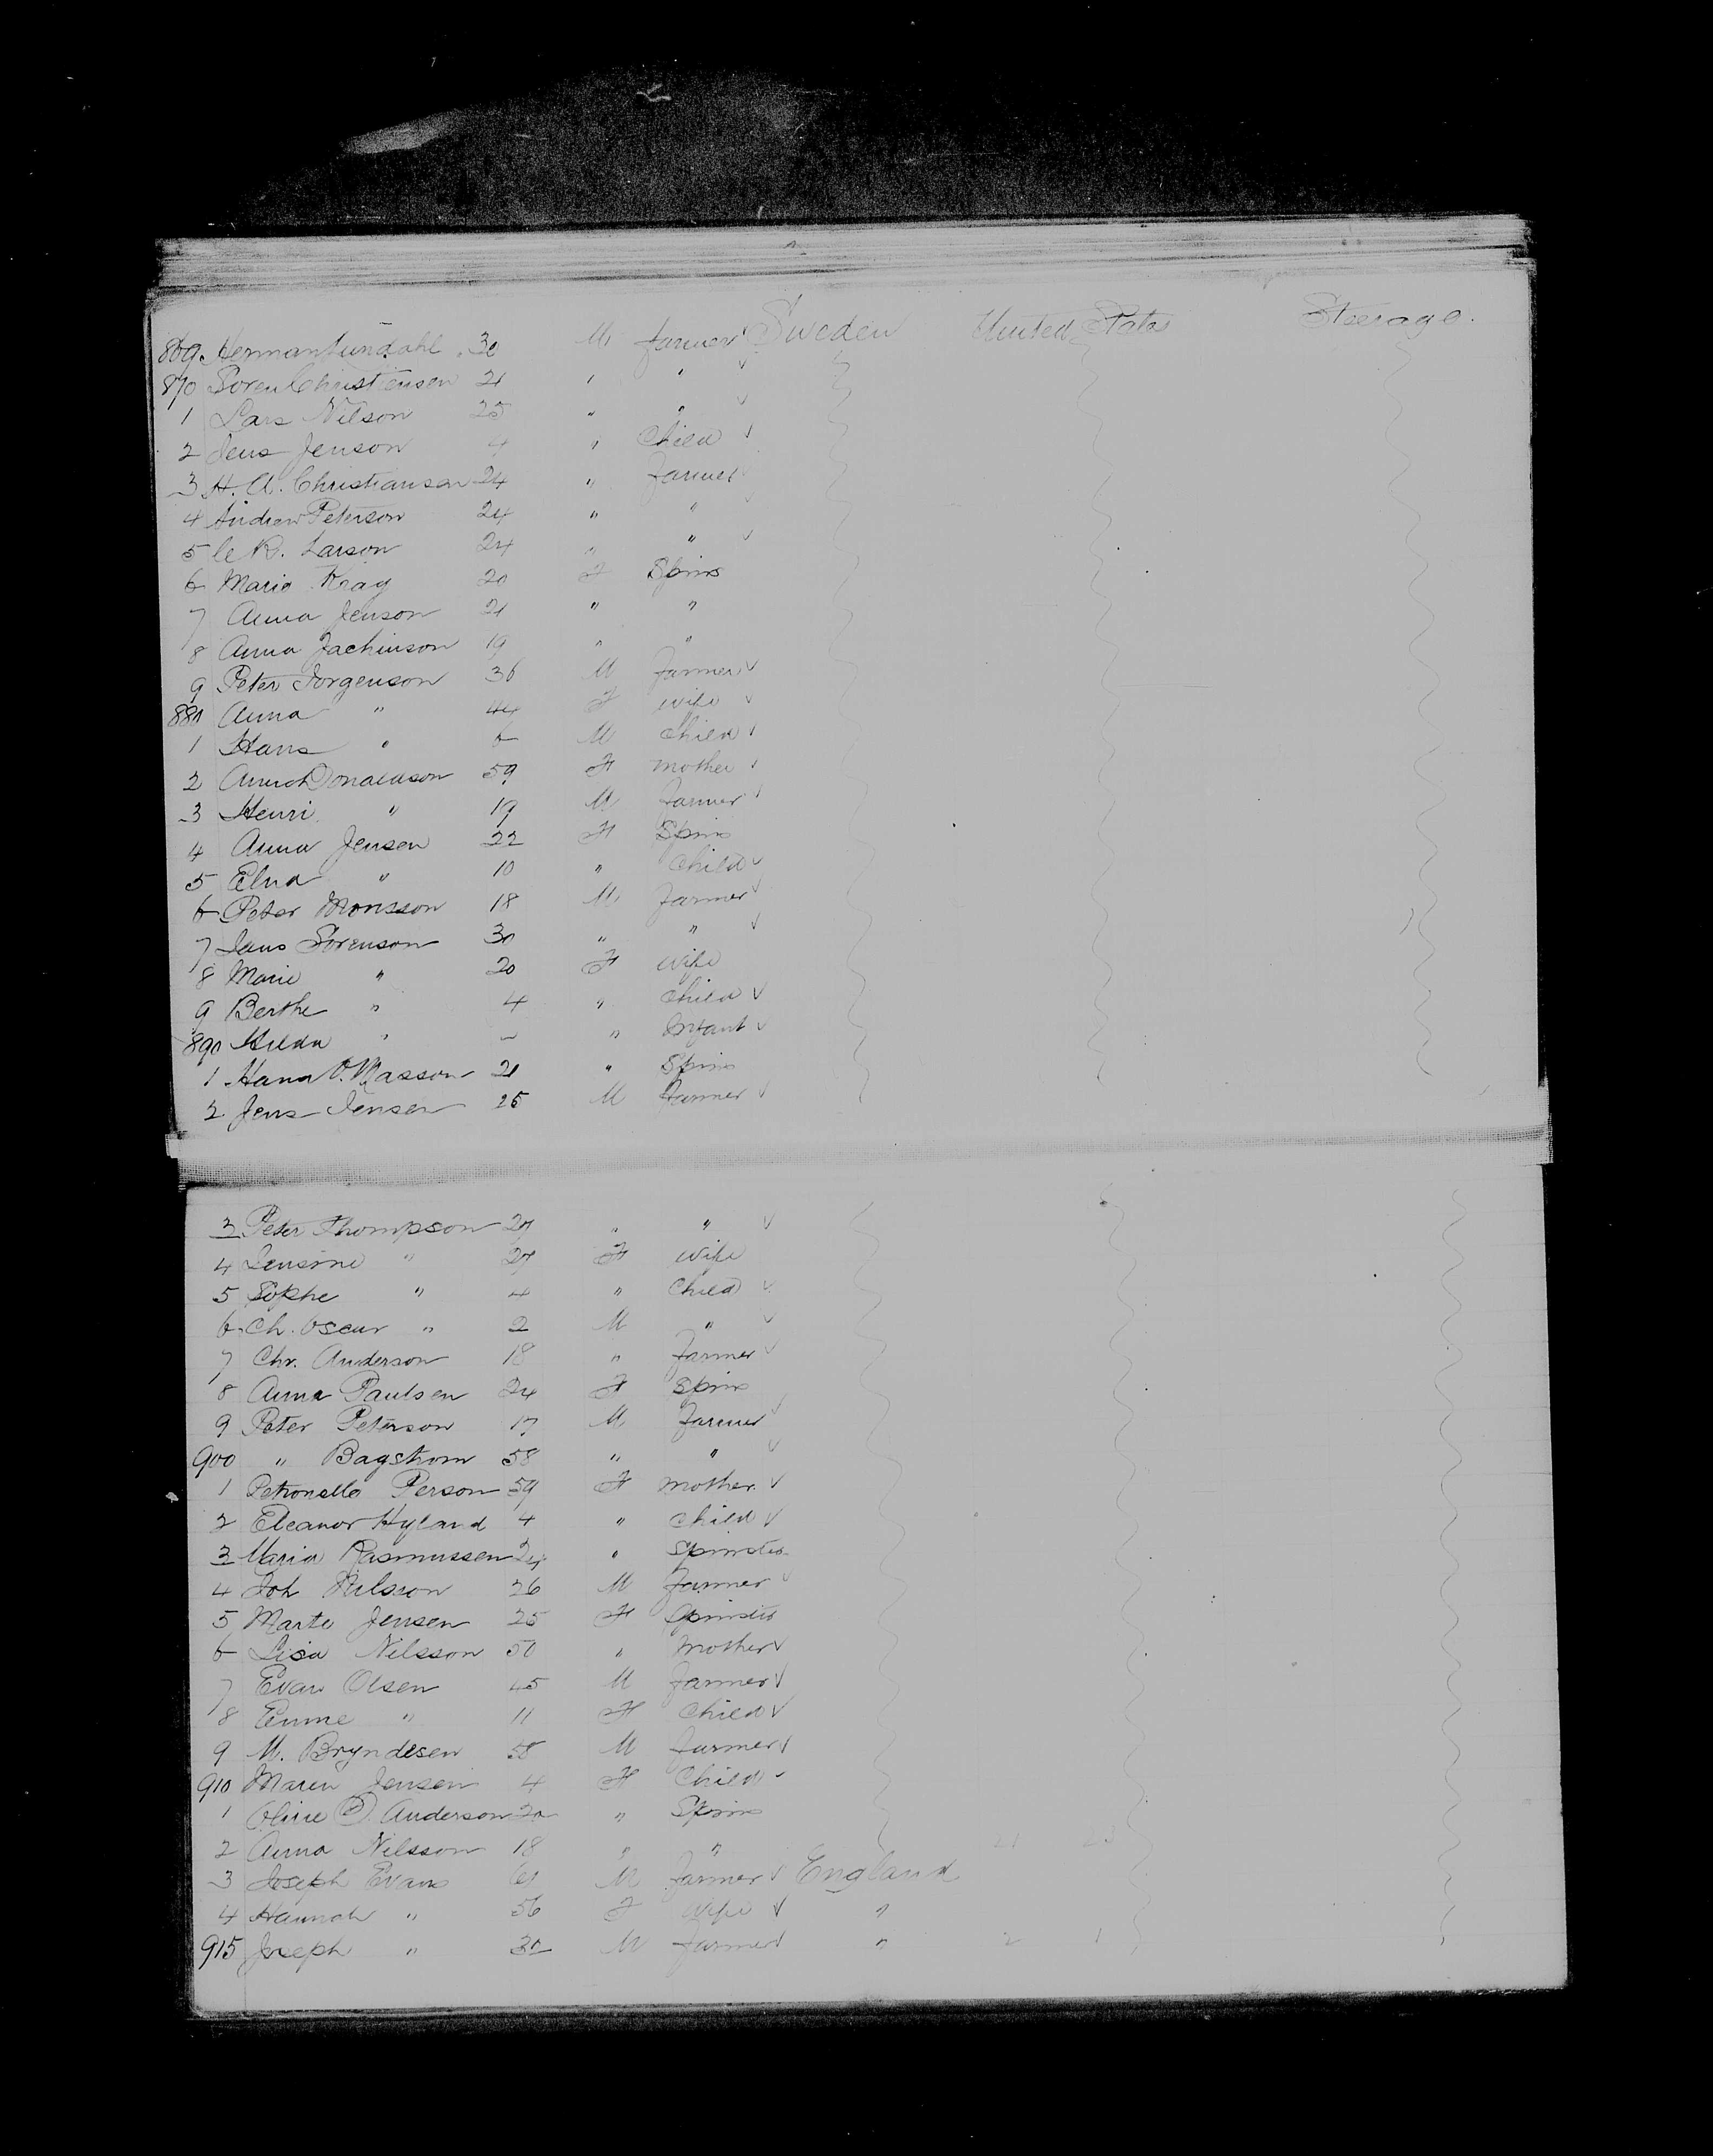 869 Herman Lundahl 30 M farmer Sweden United States Steerage.
870 Soren Christensen 21 " " ✓
1 Lars Nilson 25 " " ✓
2 Jens Jenson 4 " Child ✓
3 H. A. Christianson 24 " farmer
4 Andrew Peterson 24 " "
5 C. R. Larson 24 " " ✓
6 Maria Krag 20 F Spins
7 Anna Jenson 21 " "
8 Anna Jachinson 19 " "
9 Peter Jorgenson 36 M farmer ✓
880 Anna " 44 F wife ✓
1 Hans " 6 M Child ✓
2 Anna Donaldson 59 F mother ✓
3 Henri " 19 M farmer ✓
4 Anna Jensen 22 F Spins
5 Elna " 10 " Child ✓
6 Peter Monsson 18 M farmer ✓
7 Jans Sorenson 30 " " ✓
8 Marie " 20 F wife
9 Berthe " 4 " Child ✓
890 Hilda " ~ " Infant ✓
1 Hana O. Masson 21 " Spins
2 Jens Jensen 25 M farmer ✓
3 Peter Thompson 27 " " ✓
4 Jensine " 27 F wife
5 Sophe " 4 " Child ✓
6 Ch. Oscar " 2 M " ✓
7 Chr. Anderson 18 " farmer ✓
8 Anna Paulsen 24 F Spins
9 Peter Peterson 17 M farmer ✓
900 " Bagstrom 58 " " ✓
1 Petronella Person 59 F mother ✓
2 Eleanor Hyland 4 " Child ✓
3 Maria Rasmussen 24 " Spinster
4 Joh Nilsson 26 M farmer ✓
5 Marte Jensen 25 F Spinster
6 Lisa Nilsson 50 " mother ✓
7 Evan Olsen 45 M farmer ✓
8 Emme " 11 F Child ✓
9 M. Bryndesen 58 M farmer ✓
910 Maren Jensen 4 F Child ✓
1 Oline Anderson 20 " Spins
2 Anna Nilsson 18 " "
3 Joseph Evans 61 M farmer ✓ England
4 Hannah " 56 F wife ✓ "
915 Joseph " 30 M farmer ✓ "